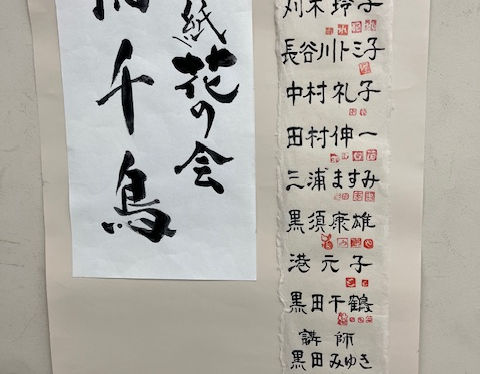 紙花の会
千鳥
刈木玲子
長谷川トミ子
中村礼子
田村伸一
三浦ますみ
黒須康雄
港元子
黒田千鶴
講師
黒田みゆき